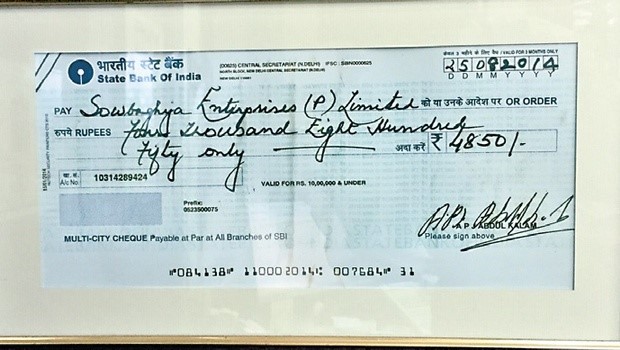 भारतीय स्टेट बैंक
State Bank Of India
(00625) CENTRAL SECRETARIAT (N.DELHI) IFSC : SBIN0000625
NORTH BLOCK, NEW DELHI CENTRAL SECRETARIAT (N.DELHI)
NEW DELHI 110001
केवल 3 महीने के लिए वैध / VALID FOR 3 MONTHS ONLY
25082014
D D M M Y Y Y Y
PAY Sowbaghya Enterprises (P) Limited को या उनके आदेश पर OR ORDER
रुपये RUPEES Four Thousand Eight Hundred
Fifty only अदा करें ₹ 4850/-
खा. सं.
A/c No. 10314289424
VALID FOR RS. 10,00,000 & UNDER
Prefix:
0623500075
A P J ABDUL KALAM
MULTI-CITY CHEQUE Payable at Par at All Branches of SBI
Please sign above
⑈084138⑈ 110002014⑆ 007684⑈ 31